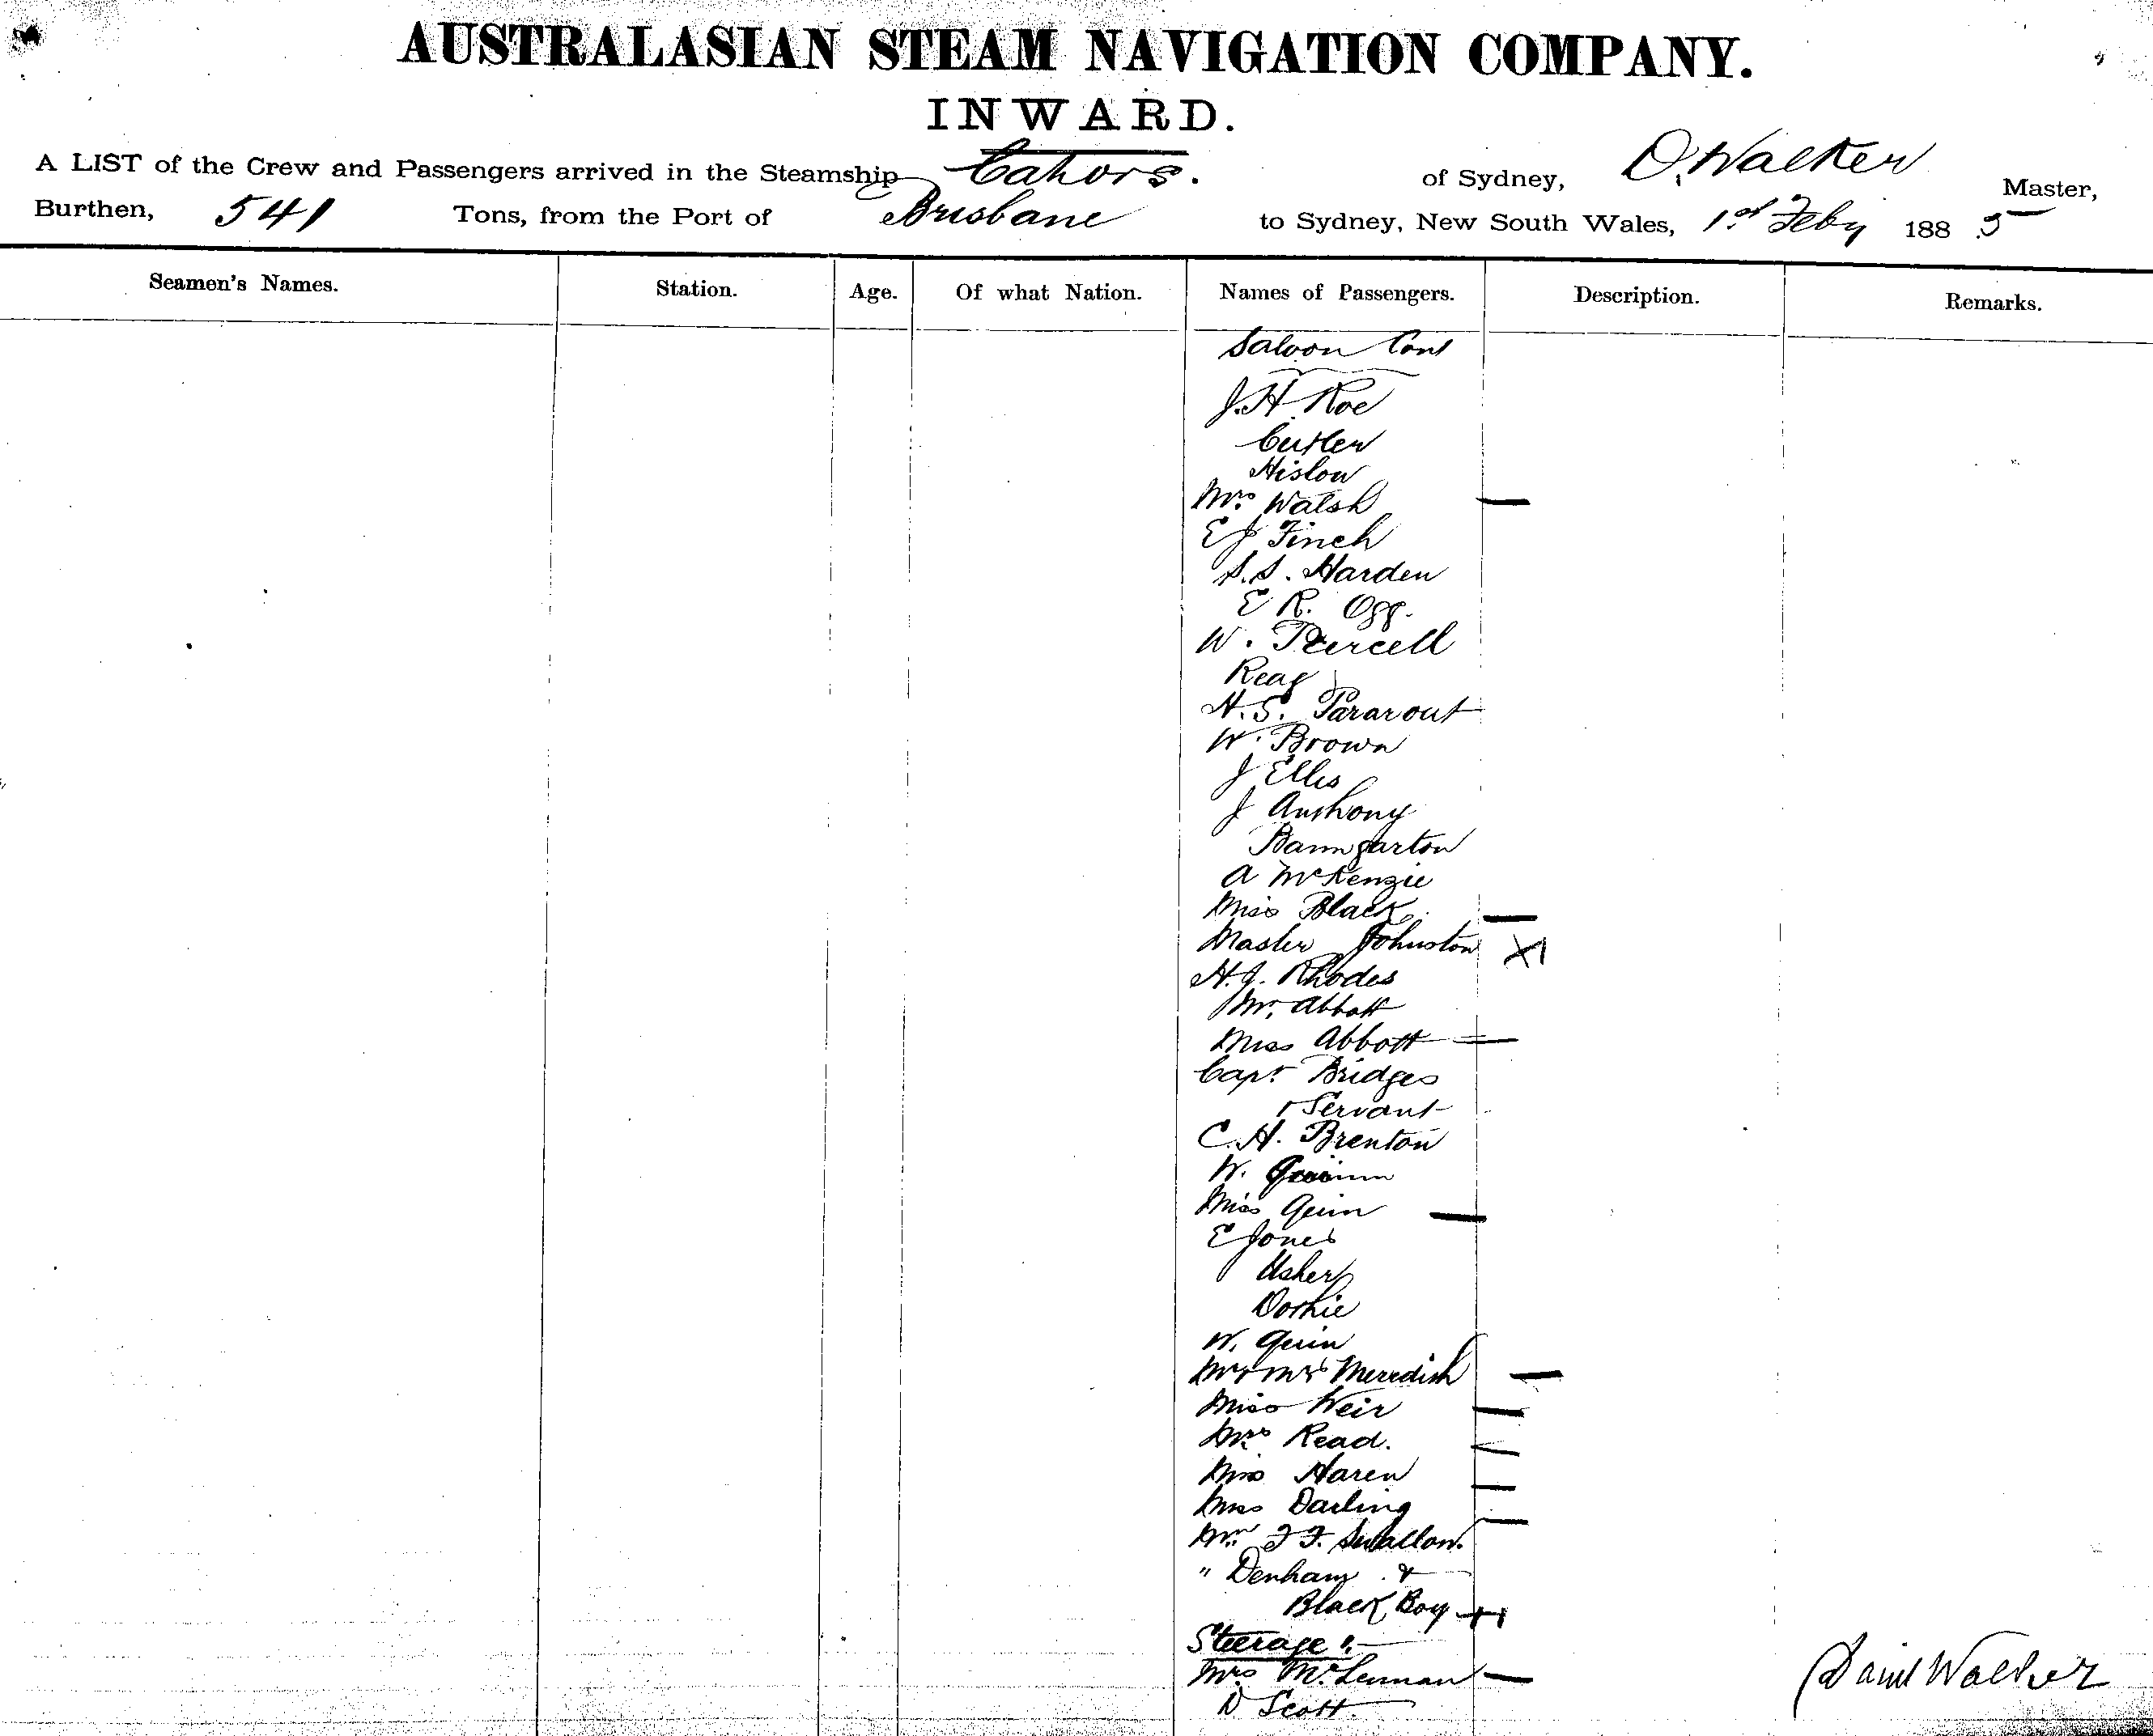 AUSTRALASIAN STEAM NAVIGATION COMPANY.
INWARD.
A LIST of the Crew and Passengers arrived in the Steamship Cahors. of Sydney, D. Walker Master,
Burthen, 541 Tons, from the Port of Brisbane to Sydney, New South Wales, 1st Feby 1885
Seamen's Names. Station. Age. Of what Nation. Names of Passengers. Description. Remarks.
Saloon Cont
J. H. Roe
Cutler
Mrs Walsh
E J Finch
S. S. Harden
E R. Ogg.
W. Purcell
H. S.
W. Brown
J Ellis
J Anthony
Baumgarton
A McKenzie
Miss Black
Master Johnston
H. J. Rhodes
Mr. Abbott
Miss Abbott
Capt Bridges
Servant
C. H. Brenton
W.
Miss Quin
E Jones
Usher
W. Quin
Mr & Mrs Meredith
Miss Weir
Mrs Read.
Miss Haren
Miss Darling
F. Swallow.
" Denham &
Black Boy
Steerage
Mrs McLennan
D Scott
Danl Walker